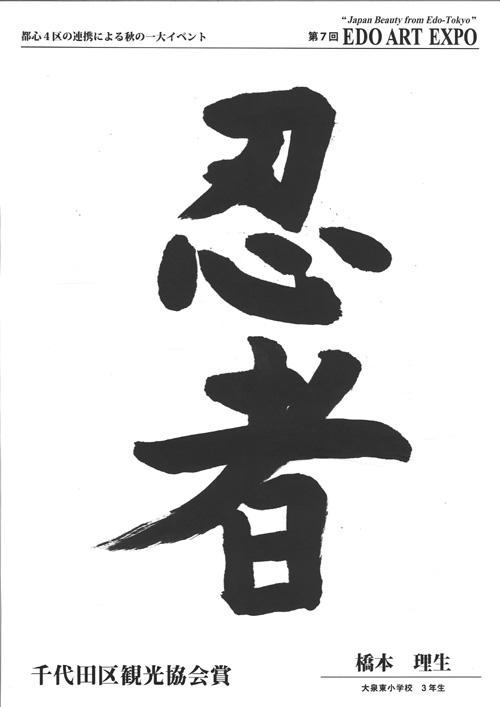 "Japan Beauty from Edo-Tokyo"
都心4区の連携による秋の一大イベント
第7回 EDO ART EXPO
忍者
千代田区観光協会賞
橋本 理生
大泉東小学校 3年生